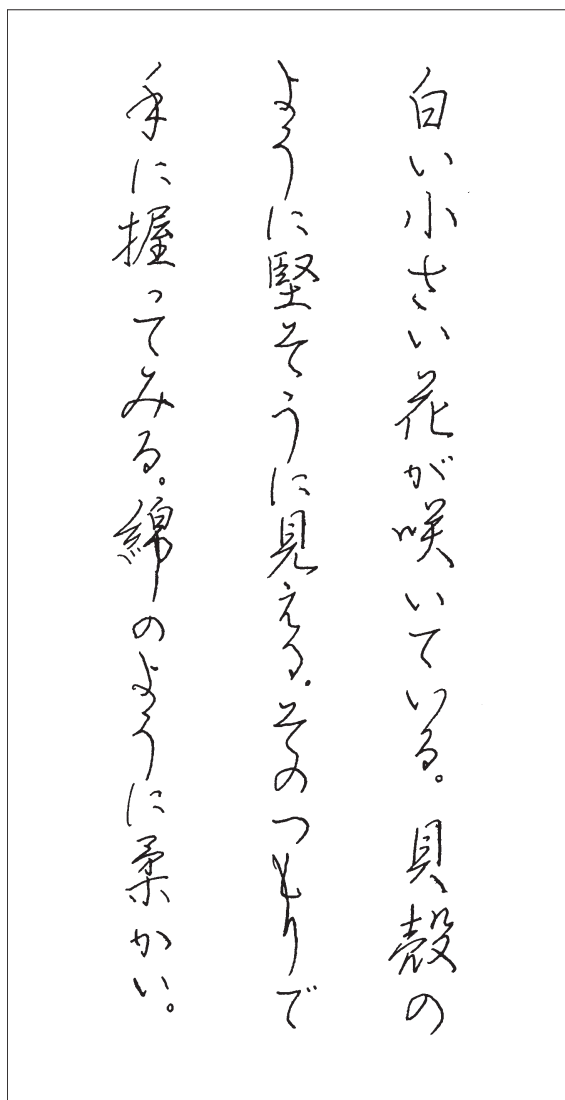 白い小さい花が咲いている。貝殻の
ように堅そうに見える。そのつもりで
手に握ってみる。綿のように柔かい。